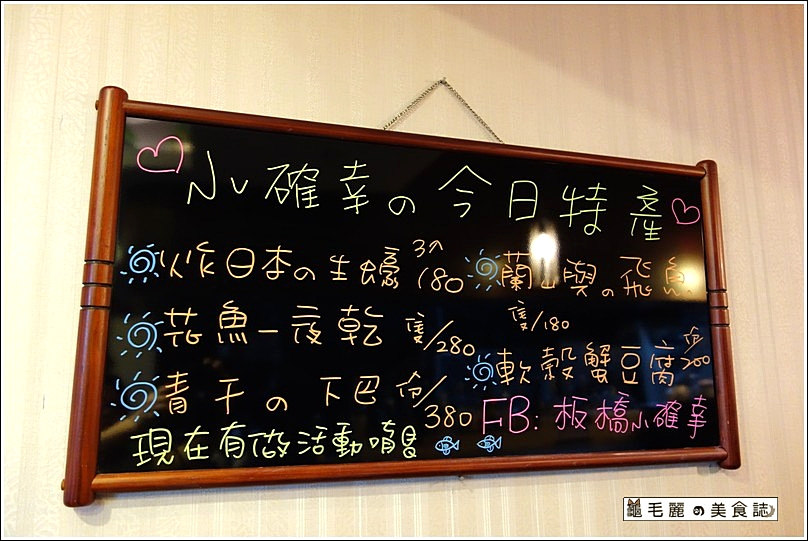 小確幸の今日特產
炸日本の生蠔 3入 180
花魚一夜乾 隻/280
青干の下巴 份/380
蘭嶼の飛魚 隻/180
軟殼蟹豆腐 份/200
現在有做活動唷
FB: 板橋小確幸
毛麗の美食誌